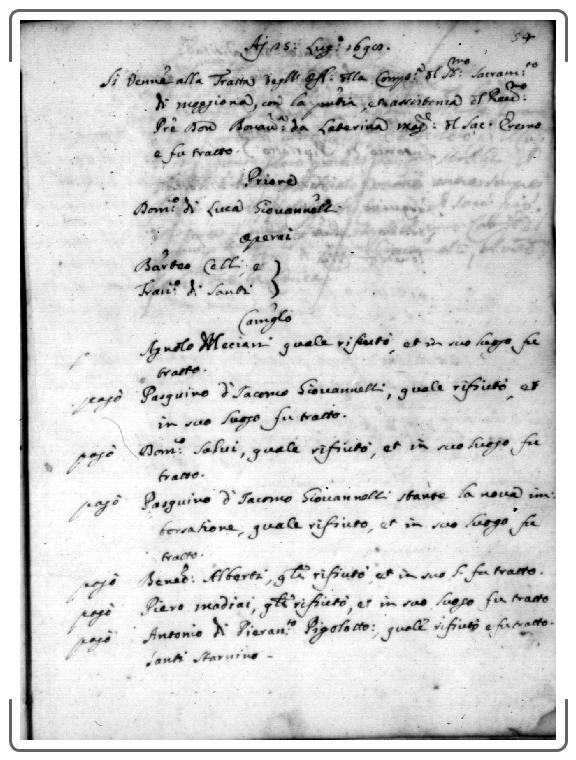 54
Aj 25: Lug.º 1690.
Si Venne alla Tratta degli Off: della Comp.ª del SS.mo Sacram.to
di moggiona, con la pntia, et assistenza del Raed.mo
Pre Don Bonav.ª da Laterina mag.: del Sac. Eremo
e fu tratto.
Priore
Dom.º di Luca Giovannelli
Operai
Barteo Celli, e
Fran.º di Santi
Camglo
Agnolo Meciani quale rifiutò, et in suo luogo fu
tratto.
pagò Pasquino d'Iacomo Giovannelli, quale rifiutò, et
in suo luogo fu tratto.
pagò Dom.º Salvi, quale rifiutò, et in suo luogo fu
tratto.
pagò Pasquino d'Iacomo Giovannelli stante la nova im-
borsatione, quale rifiutò, et in suo luogo fu
tratto.
pagò Bened: Alberti, qle rifiutò et in suo l. fu tratto.
pagò Piero madiai, qle rifiutò, et in suo luogo fu tratto
pagò Antonio di Pieran.to Pigolotto: quale rifiutò e fu tratto.
Santi Starnino